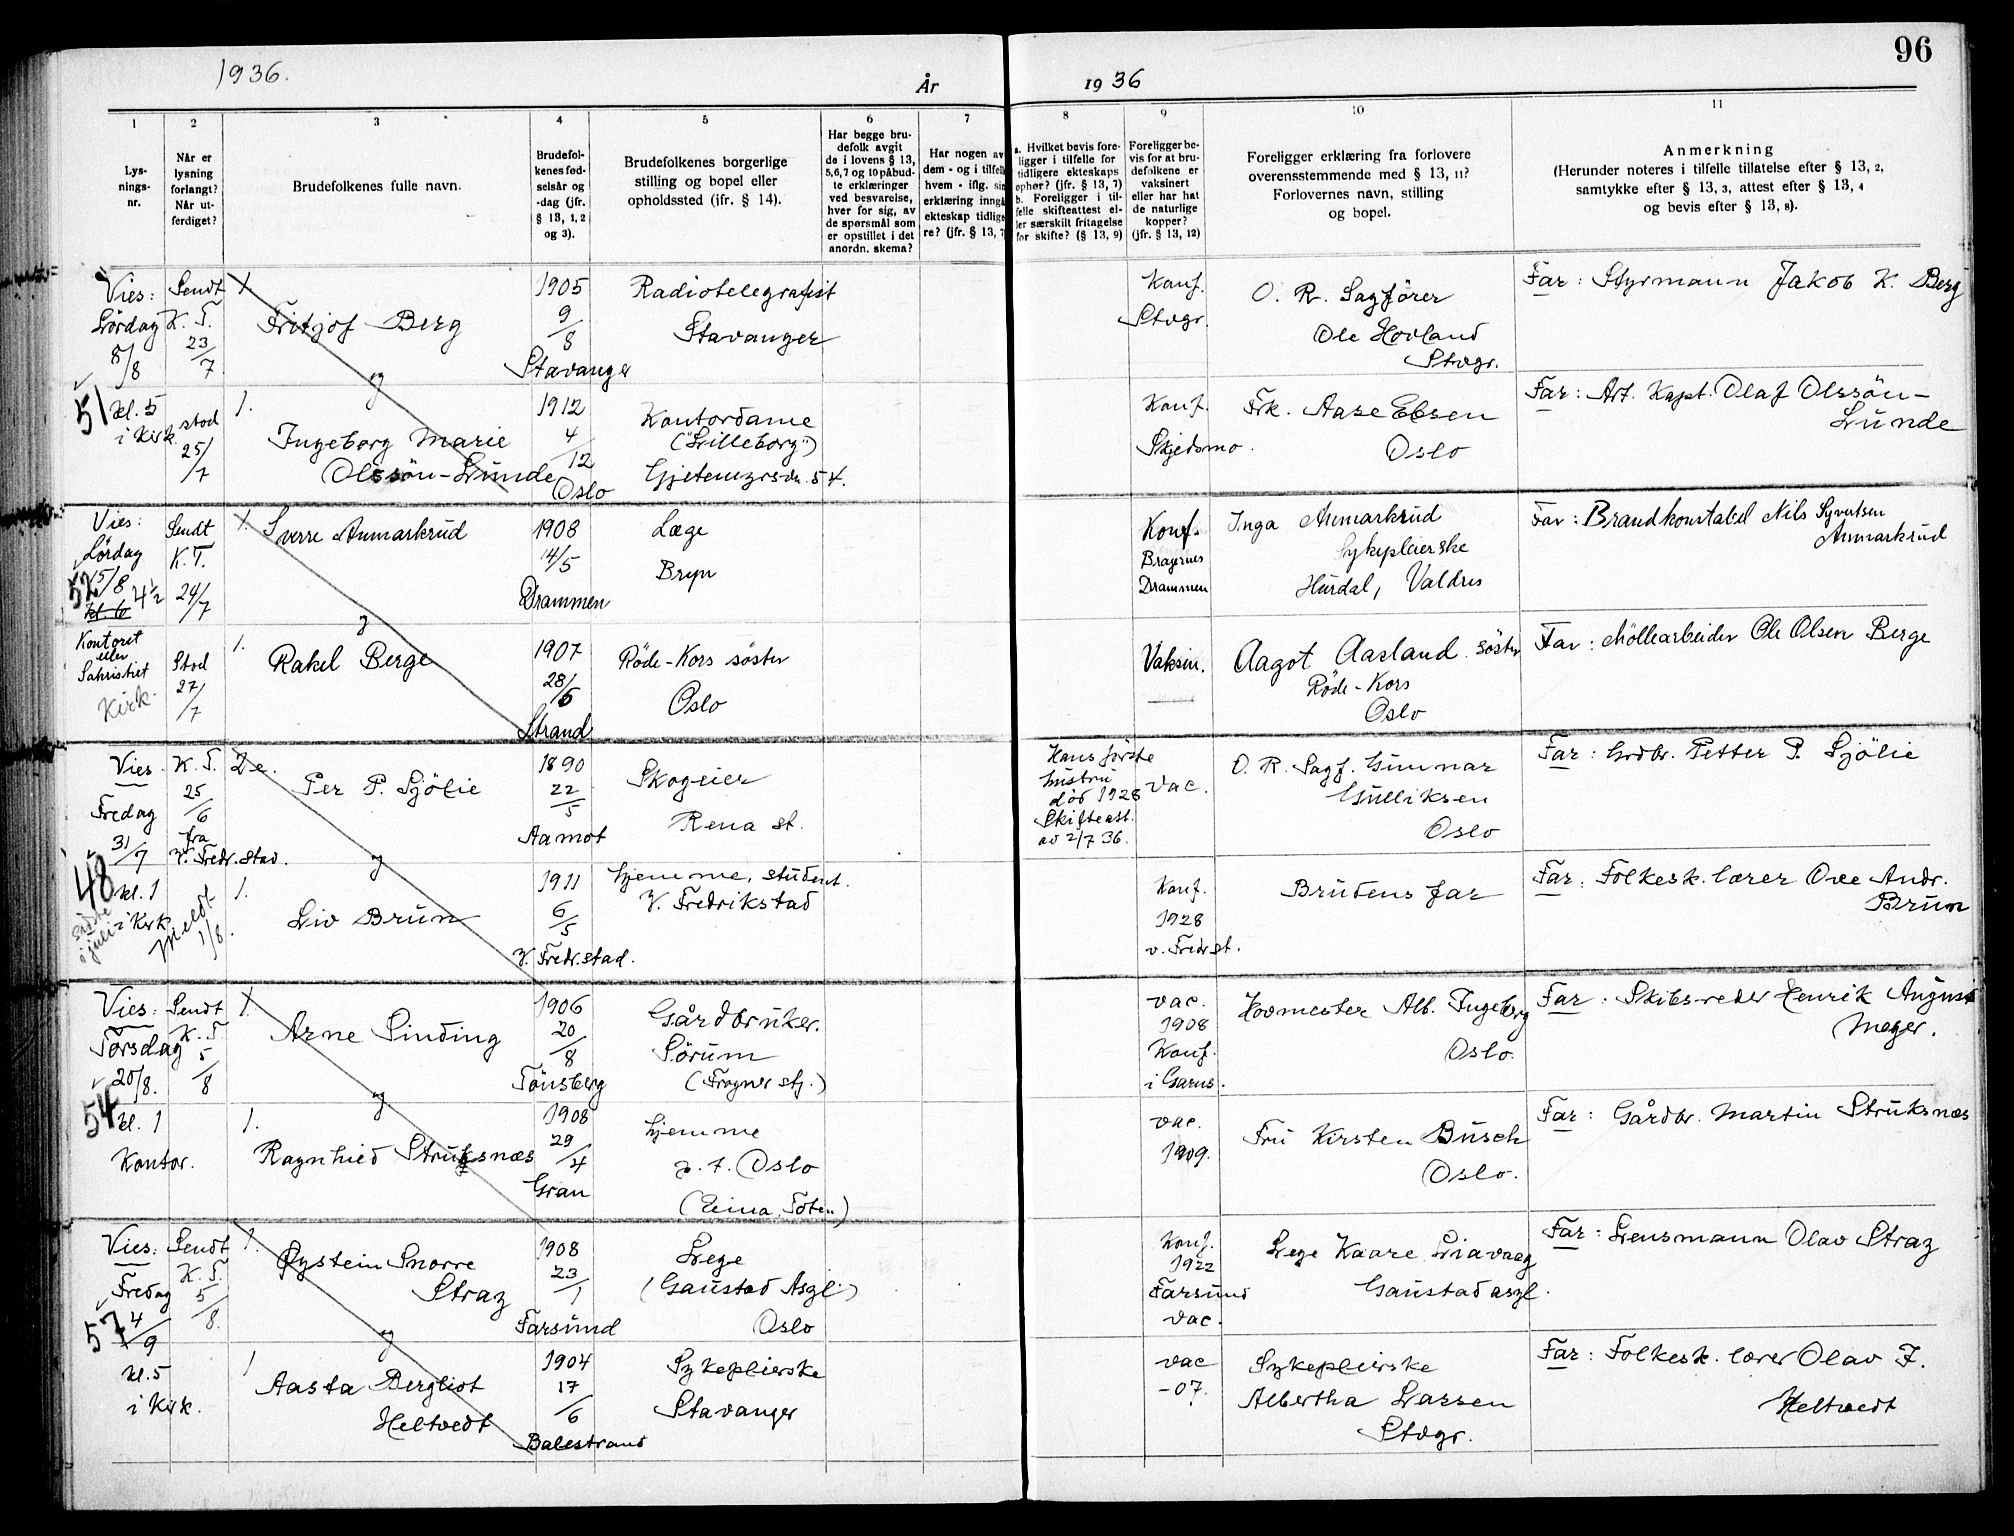 96
1936.
År
19 36
1
2
3
4
5
6
7
8
9
10
11
Lys-
nings-
nr.
Når er
lysning
forlangt?
Når ut-
ferdiget?
Brudefolkenes fulle navn.
Brudefol-
kenes fød-
selsår og
-dag (jfr.
§ 13, 1, 2
og 3).
Brudefolkenes borgerlige
stilling og bopel eller
opholdssted (jfr. § 14).
Har begge bru-
defolk avgit
de i lovens § 13,
5,6,7 og 10 påbud-
te erklæringer
ved besvarelse,
hver for sig, av
de spørsmål som
er opstillet i det
anordn. skema?
Har nogen av
dem - og i tilfelle
hvem - iflg. sin
erklæring inngå
ekteskap tidlige
re? (jfr. § 13, 7
a. Hvilket bevis fore-
ligger i tilfelle for
tidligere ekteskaps
ophør? (jfr. § 13, 7)
b. Foreligger i til-
felle skifteattest el-
ler særskilt fritagelse
for skifte? (§ 13, 9)
Foreligger be-
vis for at bru-
defolkene er
vaksinert
eller har hat
de naturlige
kopper?
(jfr. § 13, 12)
Foreligger erklæring fra forlovere
overensstemmende med § 13, 11?
Forlovernes navn, stilling
og bopel.
Anmerkning
(Herunder noteres i tilfelle tillatelse efter § 13, 2,
samtykke efter § 13, 3, attest efter § 13, 4
og bevis efter § 13, 8).
Vies:
Lördag
8/8
51
kl. 5
i Kirk.
Sendt
K. T.
23/7
stod
25/7
1.
Fritjof Berg
og
1.
Ingeborg Marie
Olssön-Lunde
1905
9/8
Stavanger
1912
4/12
Oslo
Radiotelegrafist
Stavanger
Kontordame
("Lilleborg")
Gjetemyrsvn. 54.
Konf.
Stvgr.
Konf.
Skjedsmo.
O. R. Sagförer
Ole Hovland
Stvgr.
Frk. Aase Ebsen
Oslo
Far: Styrmann Jakob K. Berg
Far: Art. Kapt. Olaf Olssön-
Lunde
Vies:
Lördag
15/8
52
4 1/2
kl. 6
Kontoret
eller
Sakristiet
Kirk.
Sendt
K.T.
24/7
Stod
27/7
1.
Sverre Anmarkrud
og
1.
Rakel Berge
1908
14/5
Drammen
1907
28/5
Strand
Læge
Bryn
Røde-Kors søster
Oslo
Konf.
Bragernes
Drammen
Vaksin.
Inga Anmarkrud
Sykepleierske
Hurdal, Valdres
Aagot Aasland søster
Røde-Kors
Oslo
Far: Brandkonstabel Nils Syvertsen
Anmarkrud
Far: Möllearbeider Ole Olsen Berge
Vies
Fredag
31/7
48
kl. 1
i Kirk
sidste
i juli
K. T.
25/6
fra
V. Fredr.stad.
Meldt
1/8.
2e.
Per P. Sjölie
og
1.
Liv Brun
1890
22/5
Aamot
1911
6/5
V. Fredr.stad.
Skogeier
Rena st.
hjemme, student.
V. Fredrikstad
Hans förste
hustru
död 1928
Skifteatt.
av 2/7 36.
Vac.
Konf.
1928
v. Fredrst.
O. R. Sagf. Gunnar
Gulliksen
Oslo
Brudens far
Far: Grdbr. Petter P. Sjölie
Far: Folkesk. lærer Ove Andr.
Brun
Vies:
Torsdag
20/8.
54
kl. 1
Kontor.
Sendt
K. T.
5/8
1.
Arne Sinding
og
1.
Ragnhild Struksnæs
1906
20/8
Tönsberg
1908
29/4
Gran
Gårdbruker.
Sörum
(Frogner stj.)
hjemme
p. t. Oslo
(Eina, Toten)
vac.
1908
Konf.
i Garns.
vac.
1909.
Hovmester Alb. Ingeberg
Oslo.
Fru Kirsten Busch
Oslo.
Far: Skibs-reder Henrik August
Meyer.
Far: Gårdbr. Martin Struksnæs
Vies:
Fredag
4/9
57
kl. 5
i Kirk.
Sendt
K. T.
5/8.
1.
Øystein Snorre
Stray
og
1
Aasta Bergliot
Heltvedt
1908
23/1
Farsund
1904
17/6
Balestrand
Lege
(Gaustad Asyl)
Oslo
Sykepleierske
Stavanger
Konf.
1922
Farsund
vac.
vac
-07.
Lege Kaare Liavaag
Gaustad asyl.
Sykepleierske
Albertha Larsen
Stvgr.
Far: Lensmann Olav Stray
Far: Folkesk. lærer Olav J.
Heltvedt